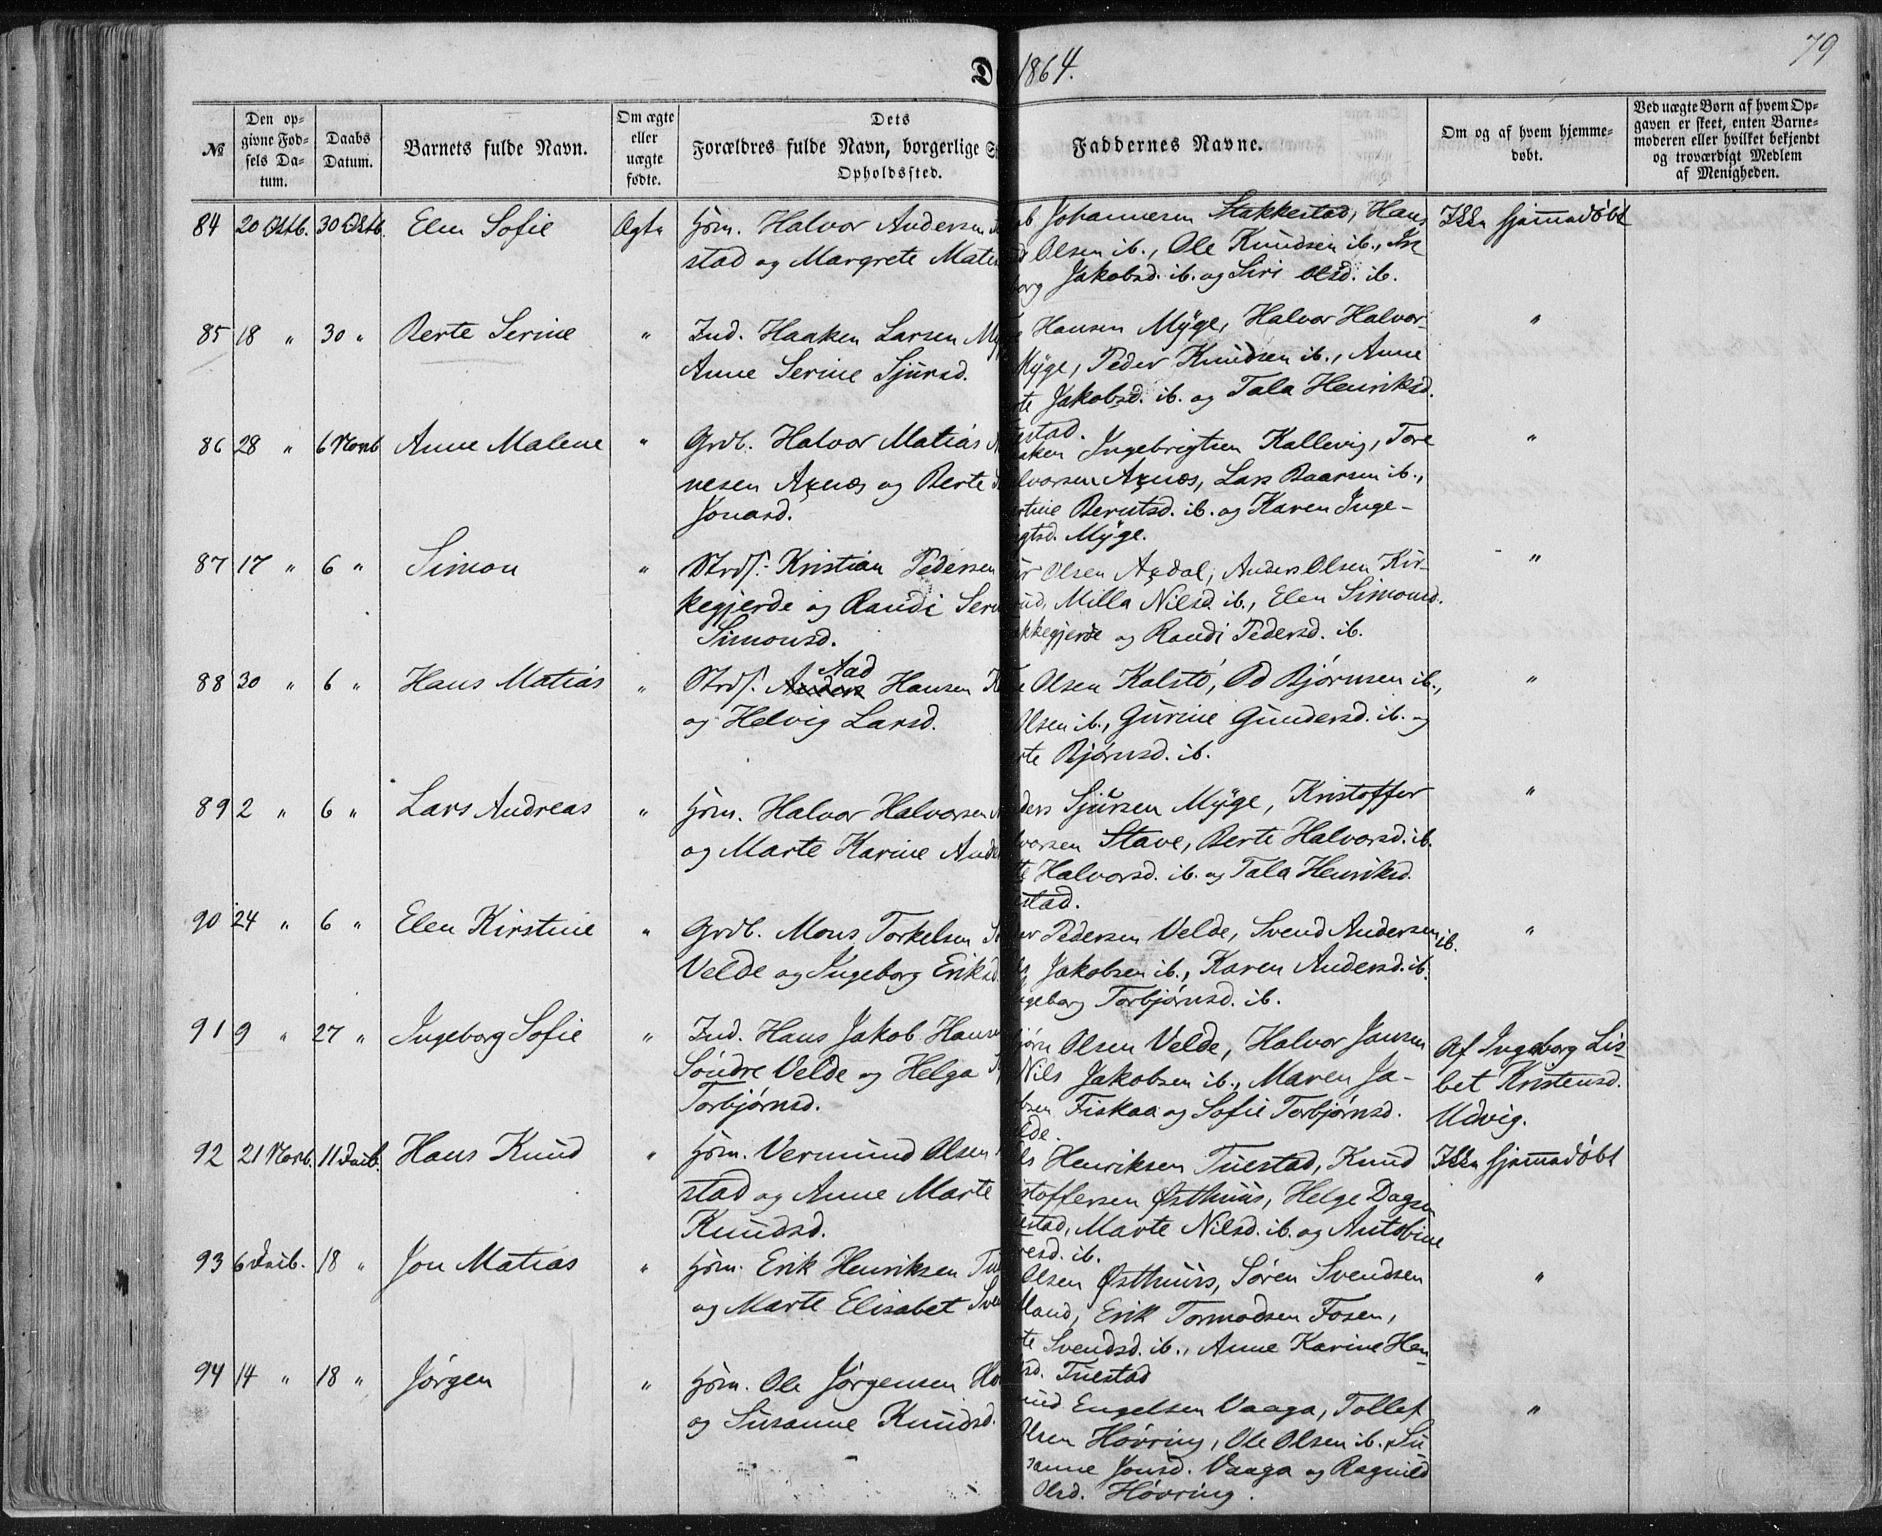 79
1864.
№
Den op-
givne Fød-
sels Da-
tum.
Daabs
Datum.
Barnets fulde Navn.
Om ægte
eller
uægte
fødte.
Dets
Forældres fulde Navn, borgerlige
Opholdssted.
Faddernes Navne.
Om og af hvem hjemme-
døbt.
Ved uægte Børn af hvem Op-
gaven er skeet, enten Barne-
moderen eller hvilket bekjendt
og troværdigt Medlem
af Menigheden.
84 20 Oktb. 30 Oktb. Elen Sofie Ægte Hsm. Halvor Andersen
stad og Margrete Mat
Johannesen Stakkestad, Hans
Olsen ib., Ole Knudsen ib., In-
borg Jakobsd. ib. og Siri Olsd. ib.
Ikke hjemmedøbt
85 18 " 30 " Berte Serine " Ind. Haaken Larsen
Anne Serine Sjursd.
Hansen Myge, Halvor Halvor-
Myge, Peder Knudsen ib., Anne
Jakobsd. ib. og Tala Henriksd.
stad.
"
86 28 " 6 Novb Anne Malene " Grdb. Halvor Matias
nesen Axnæs og Berte
Jonasd.
Ingebrigtsen Kallevig, Tore
lvorsen Axnæs, Lars Baarsen ib.,
Berntsd. ib. og Karen Inge-
gtsd. Myge.
"
87 17 " 6 " Simon " Strds. Kristian Pedersen
kegjerde og Randi Ser
Simonsd.
Olsen Axdal, Anders Olsen Kir-
Milla Nilsd. ib., Elen Simonsd.
kkegjerde og Randi Pedersd. ib.
"
88 30 " 6 " Hans Matias " Strds. Anders Aad Hansen
og Helvig Larsd.
Olsen Kalstø, Od Bjørnsen ib.,
Olsen ib., Gurine Gundersd. ib. og
rte Bjørnsd. ib.
"
89 2 " 6 " Lars Andreas " Hsm. Halvor Halvorsen
og Marte Karine Ande
ders Sjursen Myge, Kristoffer
vorsen Stave, Berte Halvorsd. ib.
Halvorsd. ib. og Tala Henriksd.
stad.
"
90 24 " 6 " Elen Kirstine " Grdb. Mons Torkelsen
Velde og Ingeborg Eriksd.
Pedersen Velde, Svend Andersen ib.
Jakobsen ib., Karen Andersd. ib.
geborg Torbjørnsd. ib.
"
91 9 " 27 " Ingeborg Sofie " Ind. Hans Jakob Hansen
Søndre Velde og Helga
Torbjørnsd.
bjørn Olsen Velde, Halvor Jansen
Nils Jakobsen ib., Maren Ja-
obsen Fiskaa og Sofie Torbjørnsd.
lde.
Af Ingeborg Lis-
bet Kristensd.
Udvig.
92 21 Novb. 11 Dcib. Hans Knud " Hsm. Vermund Olsen
stad og Anne Marte
Knudsd.
Henriksen Tuestad, Knud
stoffersen Østhuus, Helge Dagsen
stad, Marte Nilsd. ib. og Antobine
resd. ib.
Ikke hjemmedøbt
93 6 Dcib. 18 " Jon Matias " Hsm. Erik Henriksen Tu
og Marte Elisabet Sven
Olsen Østhuus, Søren Svendsen
land, Erik Tormodsen Fosen,
te Svendsd. ib., Anne Karine Hen-
sd. Tuestad
"
94 14 " 18 " Jørgen " Hsm. Ole Jørgensen
og Susanne Knudsd.
Engelsen Vaaga, Tollef
Olsen Høvring, Ole Olsen ib., Su-
sanne Jonsd. Vaaga og Ragnild
Olsd. Høvring.
"